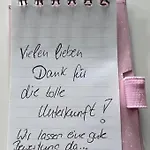 Vielen lieben
Dank für
die tolle
Unterkunft!
Wir lassen eine gute
Bewertung da...